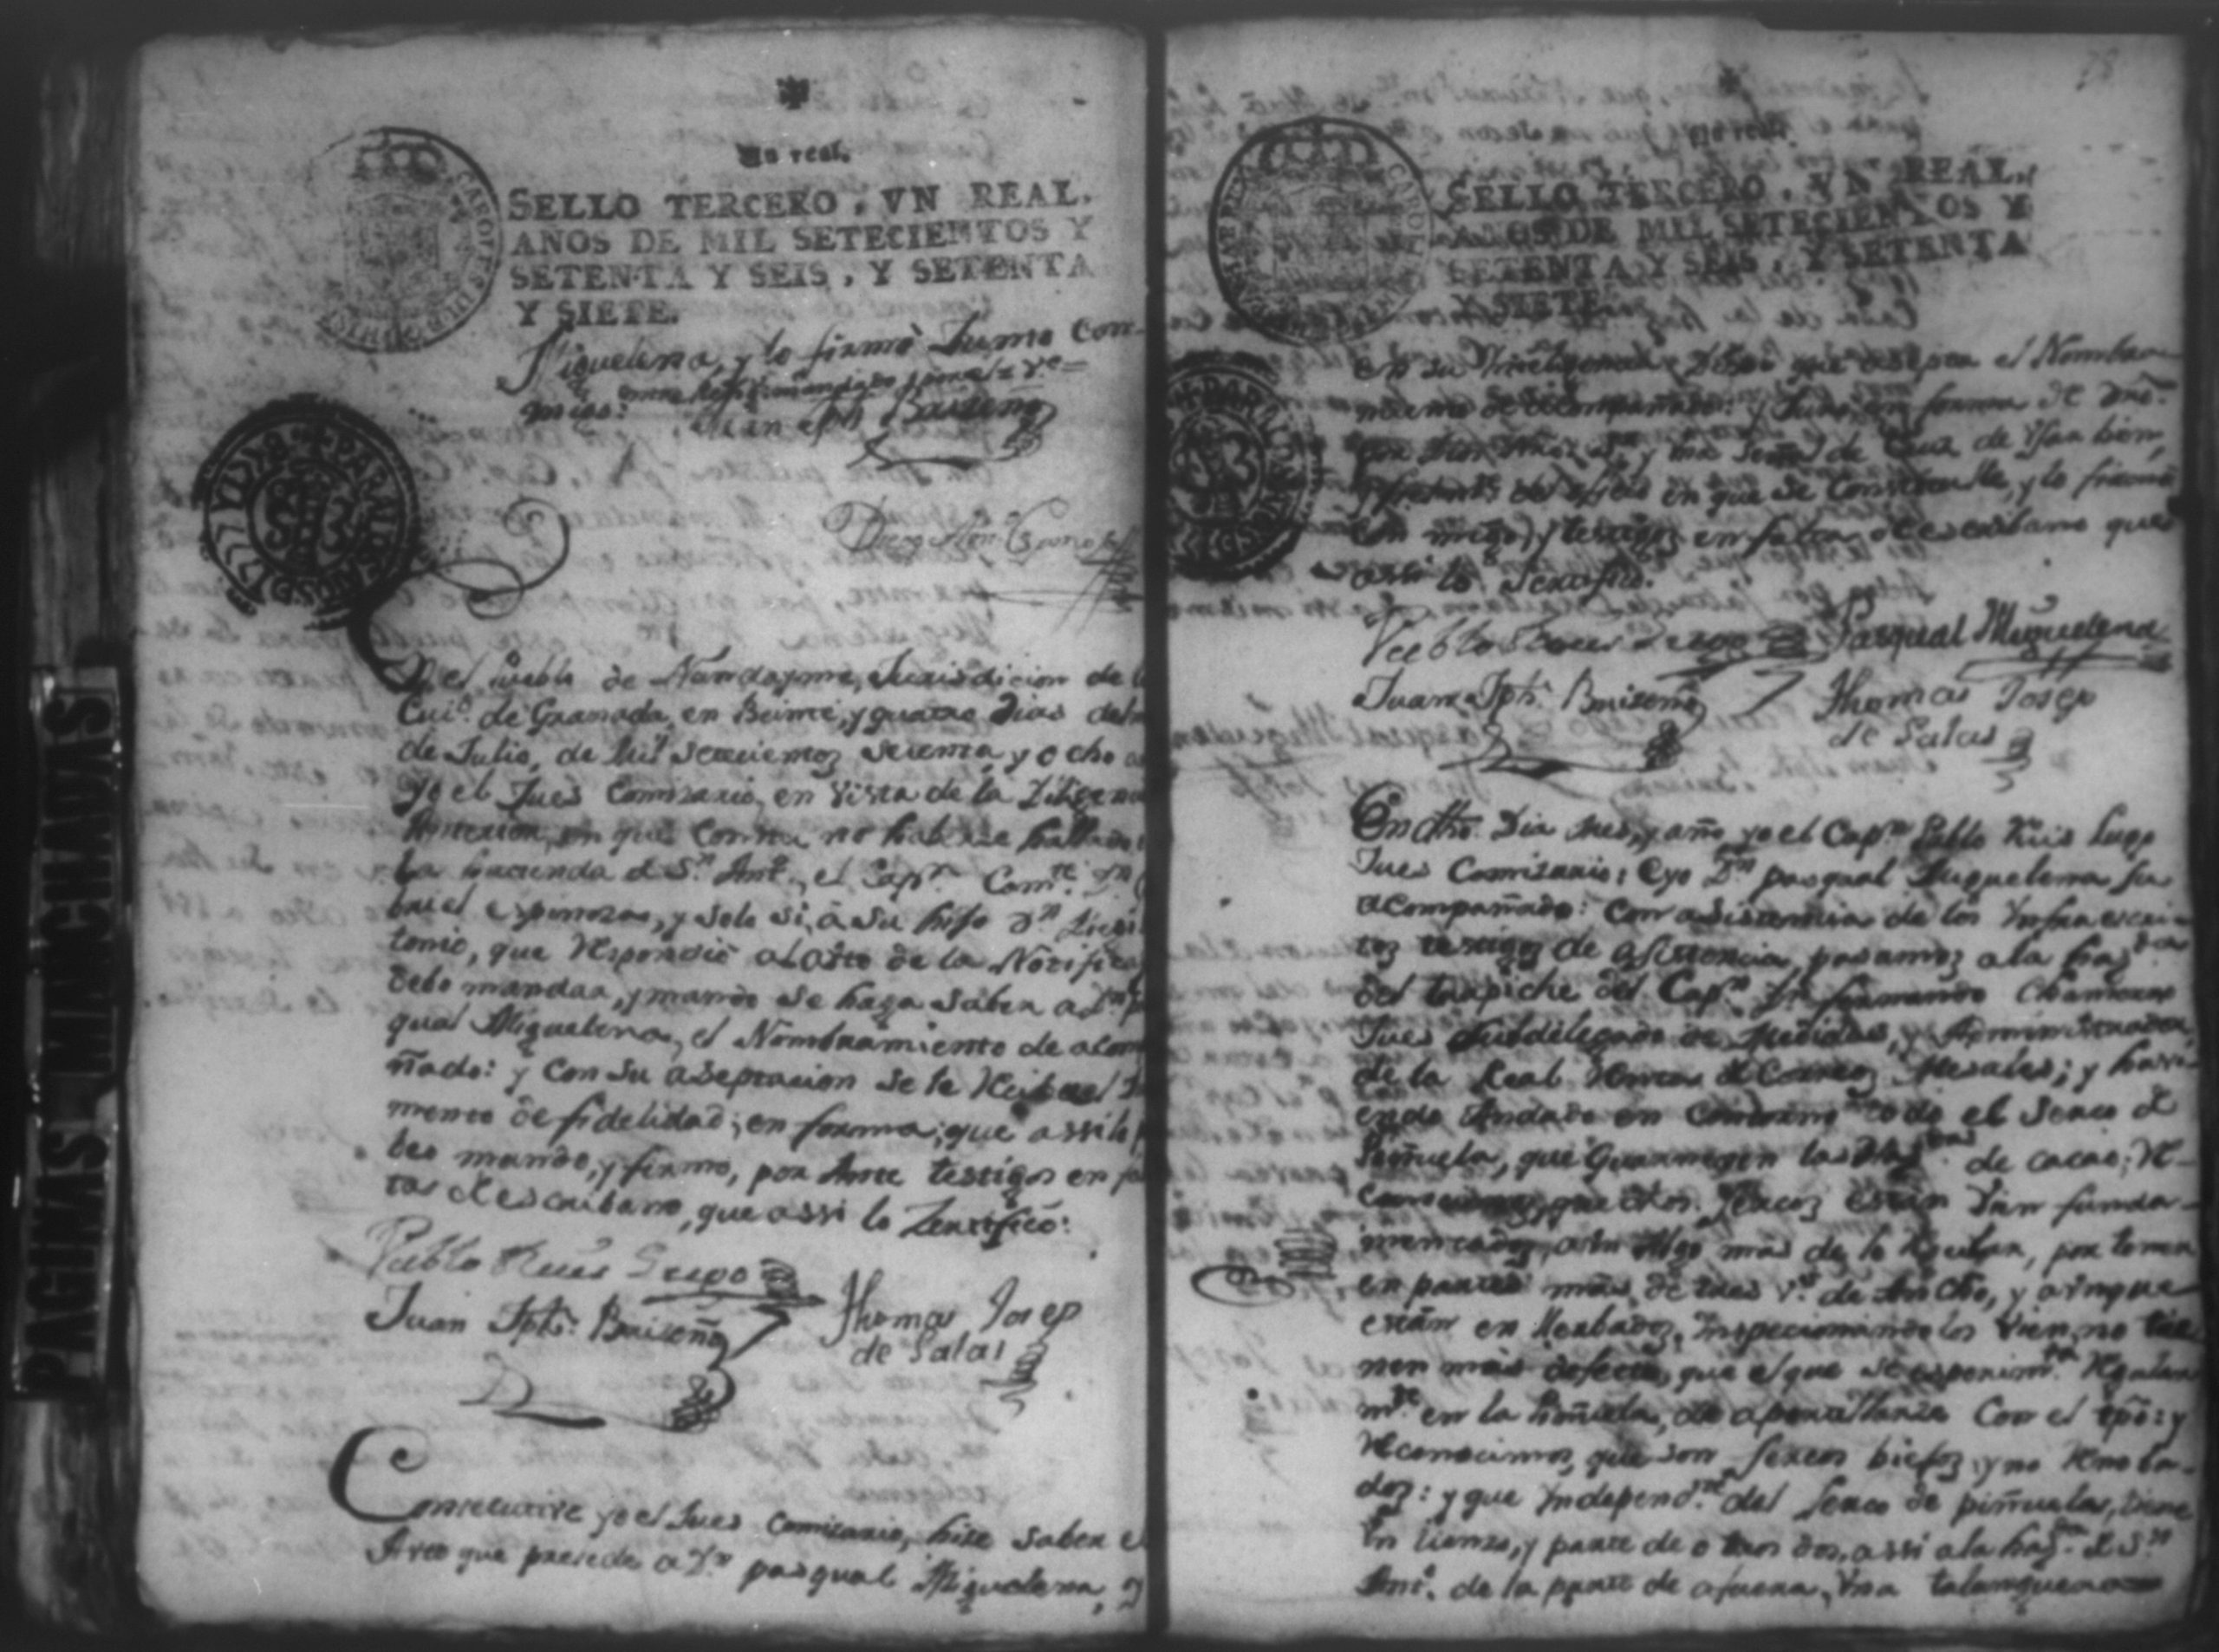 PAGINAS MANCHADAS
Un real.
SELLO TERCERO, VN REAL,
AÑOS DE MIL SETECIENTOS Y
SETENTA Y SEIS, Y SETENTA
Y SIETE.
Miguelena, y lo firmó Junto Con-
migo:
Juan Jph Briseño
En el Pueblo de Nandayme, Jurisdicion de
Ciu.d de Granada, en Beinte, y quatro Dias del
de Julio, de Mil Setecientos Setenta y ocho
Yo el Jues Comisario, en Vista de la Diligen
Anterior, en que Consta no haberse hallado
La hacienda d S.n Ant.o el Cap.n Com.te D.n
briel espinoza, y solo si, a su hijo D.n Diego
tonio, que Respondió al acto de la Notific
debo mandar, y mando se haga Saber a D.n P
qual Miguelena, el Nombramiento de acom
ñado: y Con su aseptacion se le Reciba el
mento de fidelidad, en forma; que assi lo p
beo mando, y firmo, por Ante testigos en fa
ta d escribano, que assi lo Zertifico:
Pablo Ruis Lugo
Juan Jph. Briseño
Thomas Josep
de Salas
Consecutive yo el Jues Comisario, hise Saber e
Auto que precede a D.n pasqual Miguelena, y
SELLO TERCERO, VN REAL,
AÑOS DE MIL SETECIENTOS Y
SETENTA Y SEIS, Y SETENTA
Y SIETE.
en su Inteligencia Dijo que asepta el Nombra-
miento de acompañado: y Juró en forma de dro.
por Dios Nro. S.r y una Señal de Cruz de Usar bien,
y fielmte. del oficio en que se Constituille, y lo firmó
Con migo, y testigos en falta de escribano que
assi lo Sertifico.
Pablo Ruis Lugo
Pasqual Miguelena
Juan Jph. Briseño
Thomas Josep
de Salas
En dho. Dia Mes, y año yo el Cap.n Pablo Ruis Lugo
Jues Comisario: e yo D.n pasqual Miguelena su
acompañado: Con asistencia de los Ynfraescri-
tos testigos de asistencia, pasamos a la haz.da
del trapiche del Cap.n D.n fernando Chamorro
Jues Subdelegado de Medidas, y Administrador
de la Real Renta de Correos Mesales; y havi-
endo Andado en Contorno todo el Serco d
Piñuela, que Guarnesen las Haz.das de cacao; Re-
conosimos, que dhos. Sercos estan Vien funda-
mentados, aun Algo mas de lo Regular, por tener
en partes mas de tres v.s de Ancho, y aunque
están en Realbados, Inspecionandolos Vien, no tie
nen mas defecto, que el que se esperim.ta Regular
m.te en la Piñuela, de apensillarse Con el tpo: y
Reconosimos, que son sercos biejos, y no Renoba-
dos: y que Independ.te del Serco de piñuelas, tiene
Un lienzo, y parte de otros dos, assi a la haz.da d S.n
Ant.o de la parte de afuera, Una talanquera